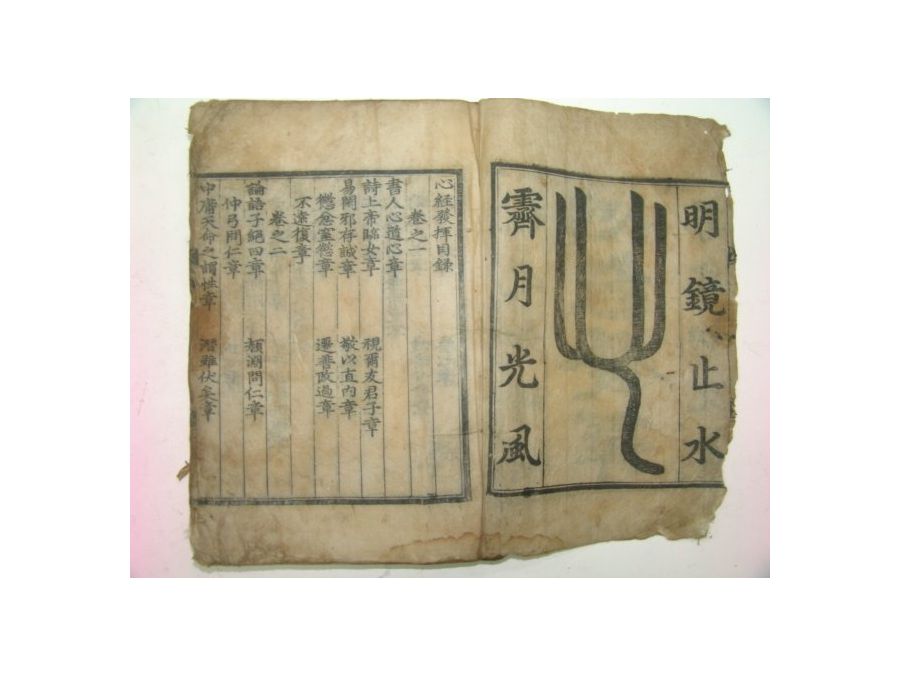 明鏡止水
霽月光風
心經發揮目錄
卷之一
書人心道心章
詩上帝臨女章 視爾友君子章
易閑邪存誠章 敬以直內章
懲忿窒慾章 遷善改過章
不遠復章
卷之二
論語子絕四章 顏淵問仁章
仲弓問仁章
中庸天命之謂性章 潛雖伏矣章